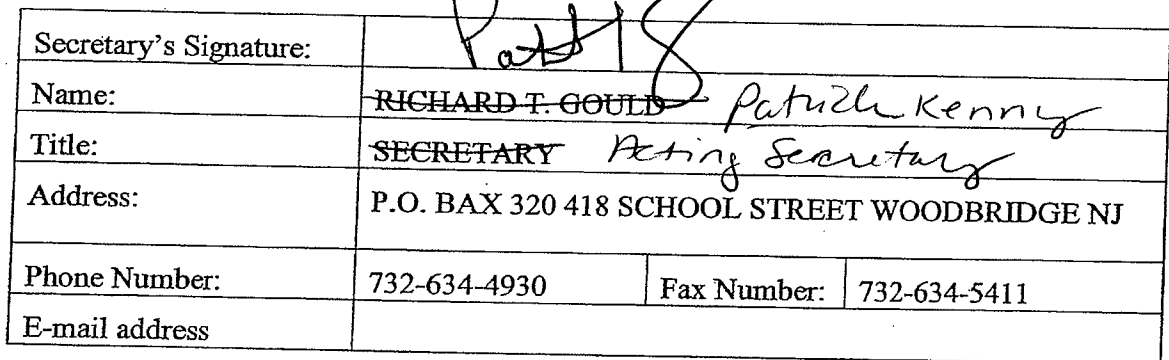 Secretary's Signature:
Name: RICHARD T. GOULD Patrick Kenny
Title: SECRETARY Acting Secretary
Address: P.O. BAX 320 418 SCHOOL STREET WOODBRIDGE NJ
Phone Number: 732-634-4930 Fax Number: 732-634-5411
E-mail address